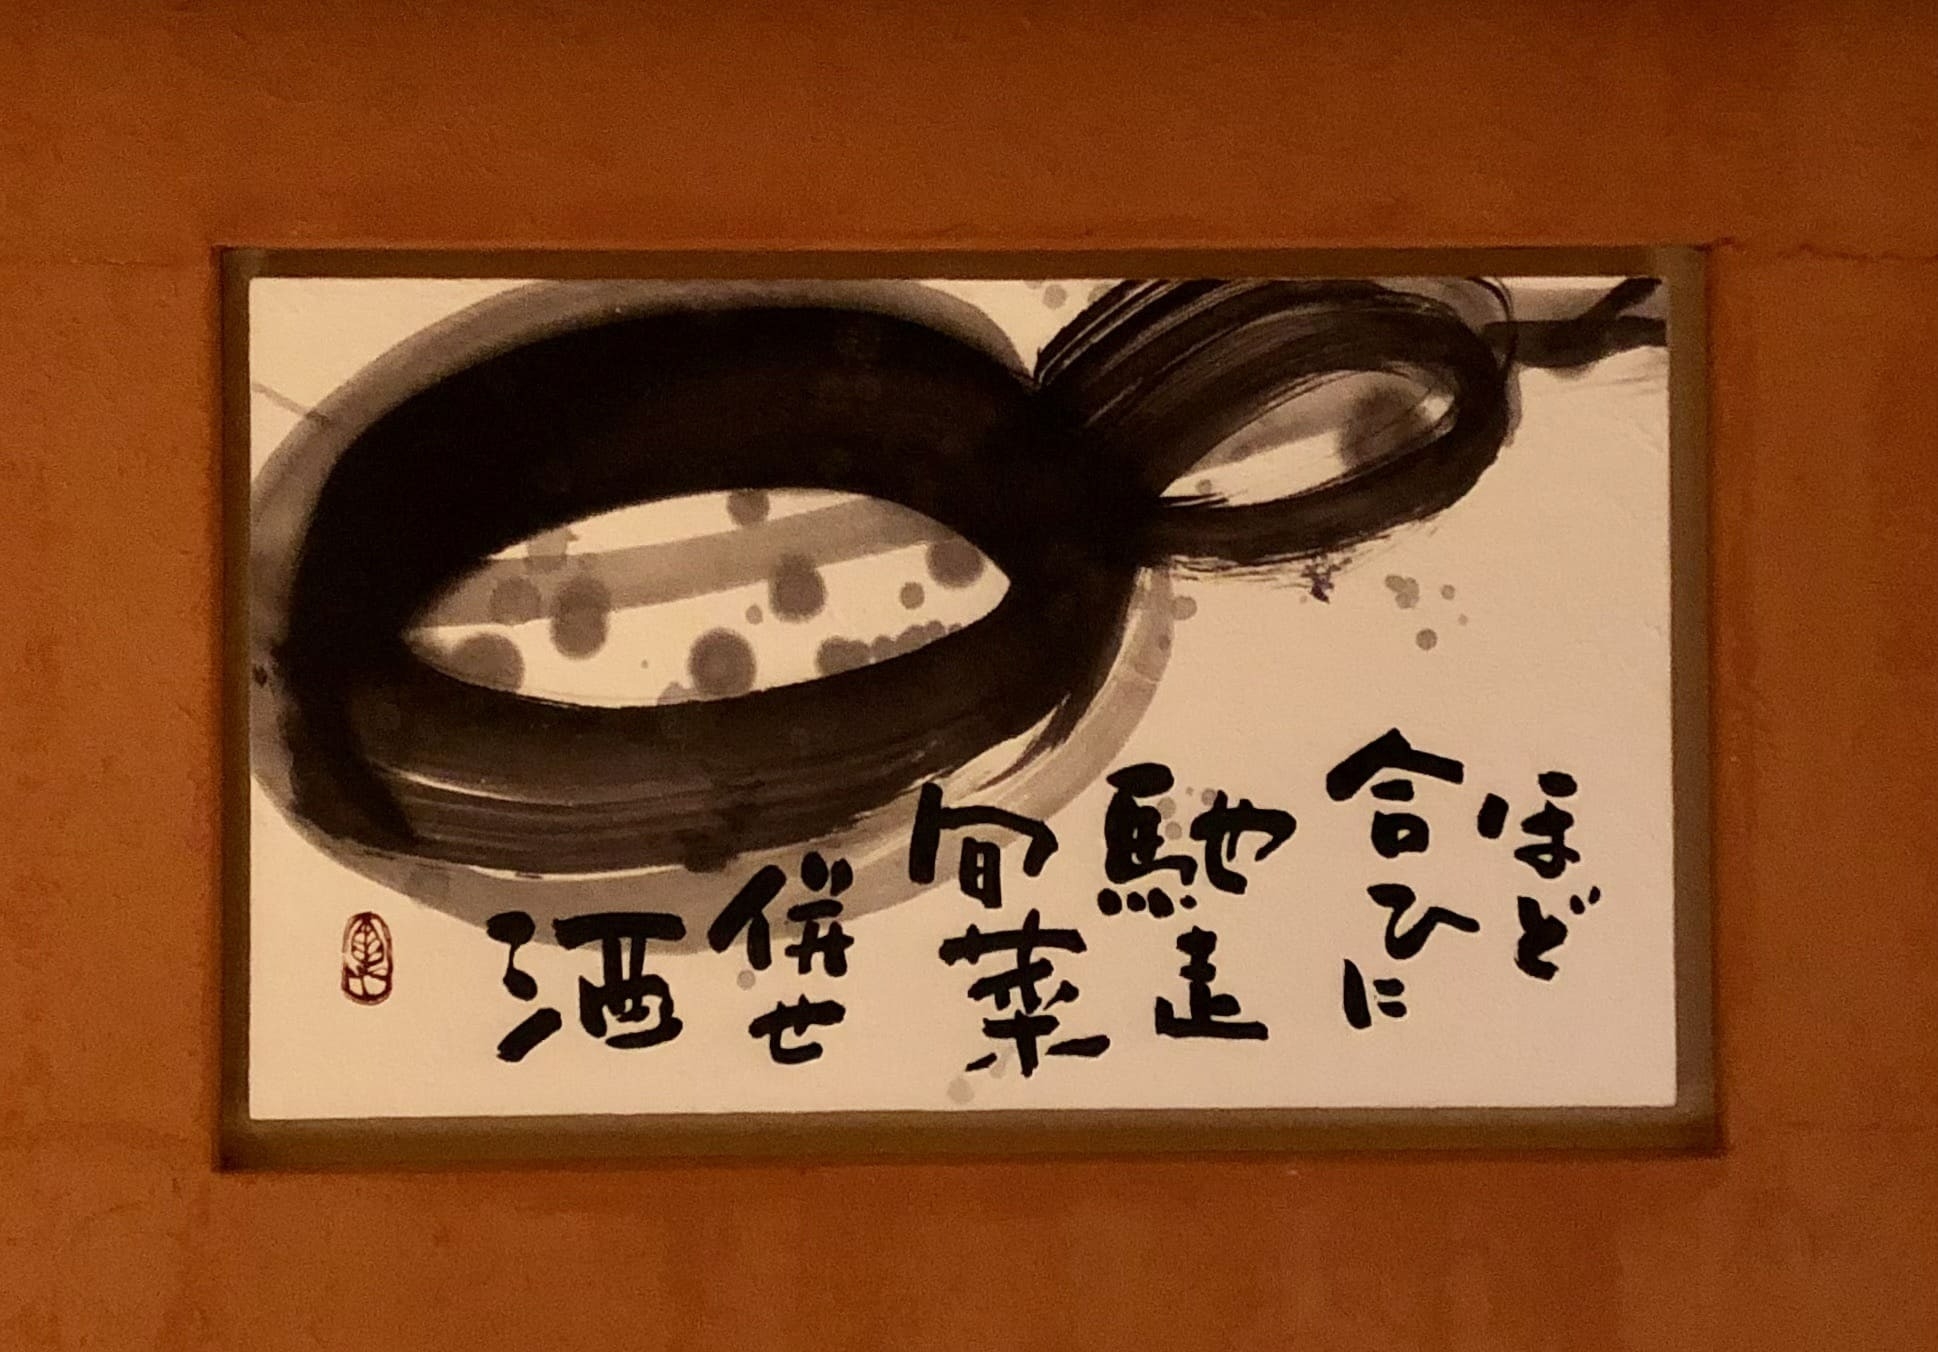 ほど
合ひに
馳走
旬菜
併せ
酒